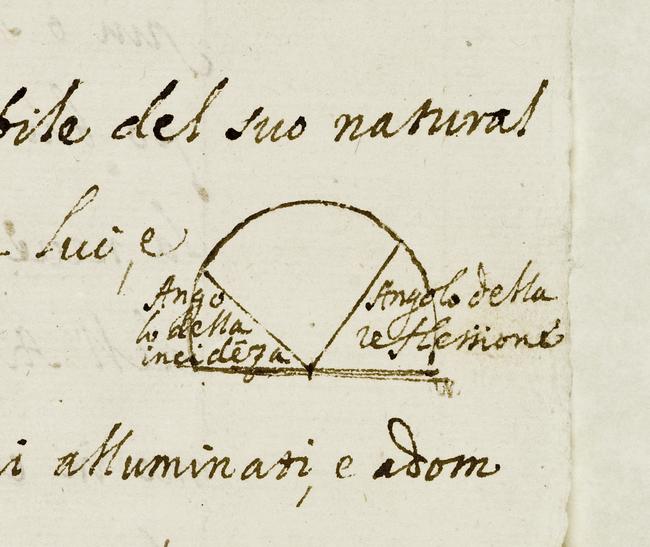 bile del suo natural
lui, e
Ango
lo della
incidēza
Angolo della
reflessione
i alluminati, e adom